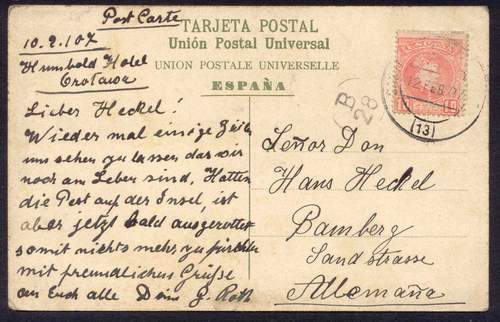 Post Carte
TARJETA POSTAL
Unión Postal Universal
UNION POSTALE UNIVERSELLE
ESPAÑA
10.2.107
Humbold Hotel
Orotawa
Lieber Heckel!
Wieder mal einige Zeilen
um sehen zu lassen das wir
noch am Leben sind, Hatten
die Pest auf der Insel, ist
aber jetzt bald ausgerottet
somit nichts mehr zu fürchten
mit freundlichen Grüße
an Euch alle Dein G. Roth
B
28
12 FEB 0
(13)
Señor Don
Hans Heckel
Bamberg
Sandstrasse
Allemaña